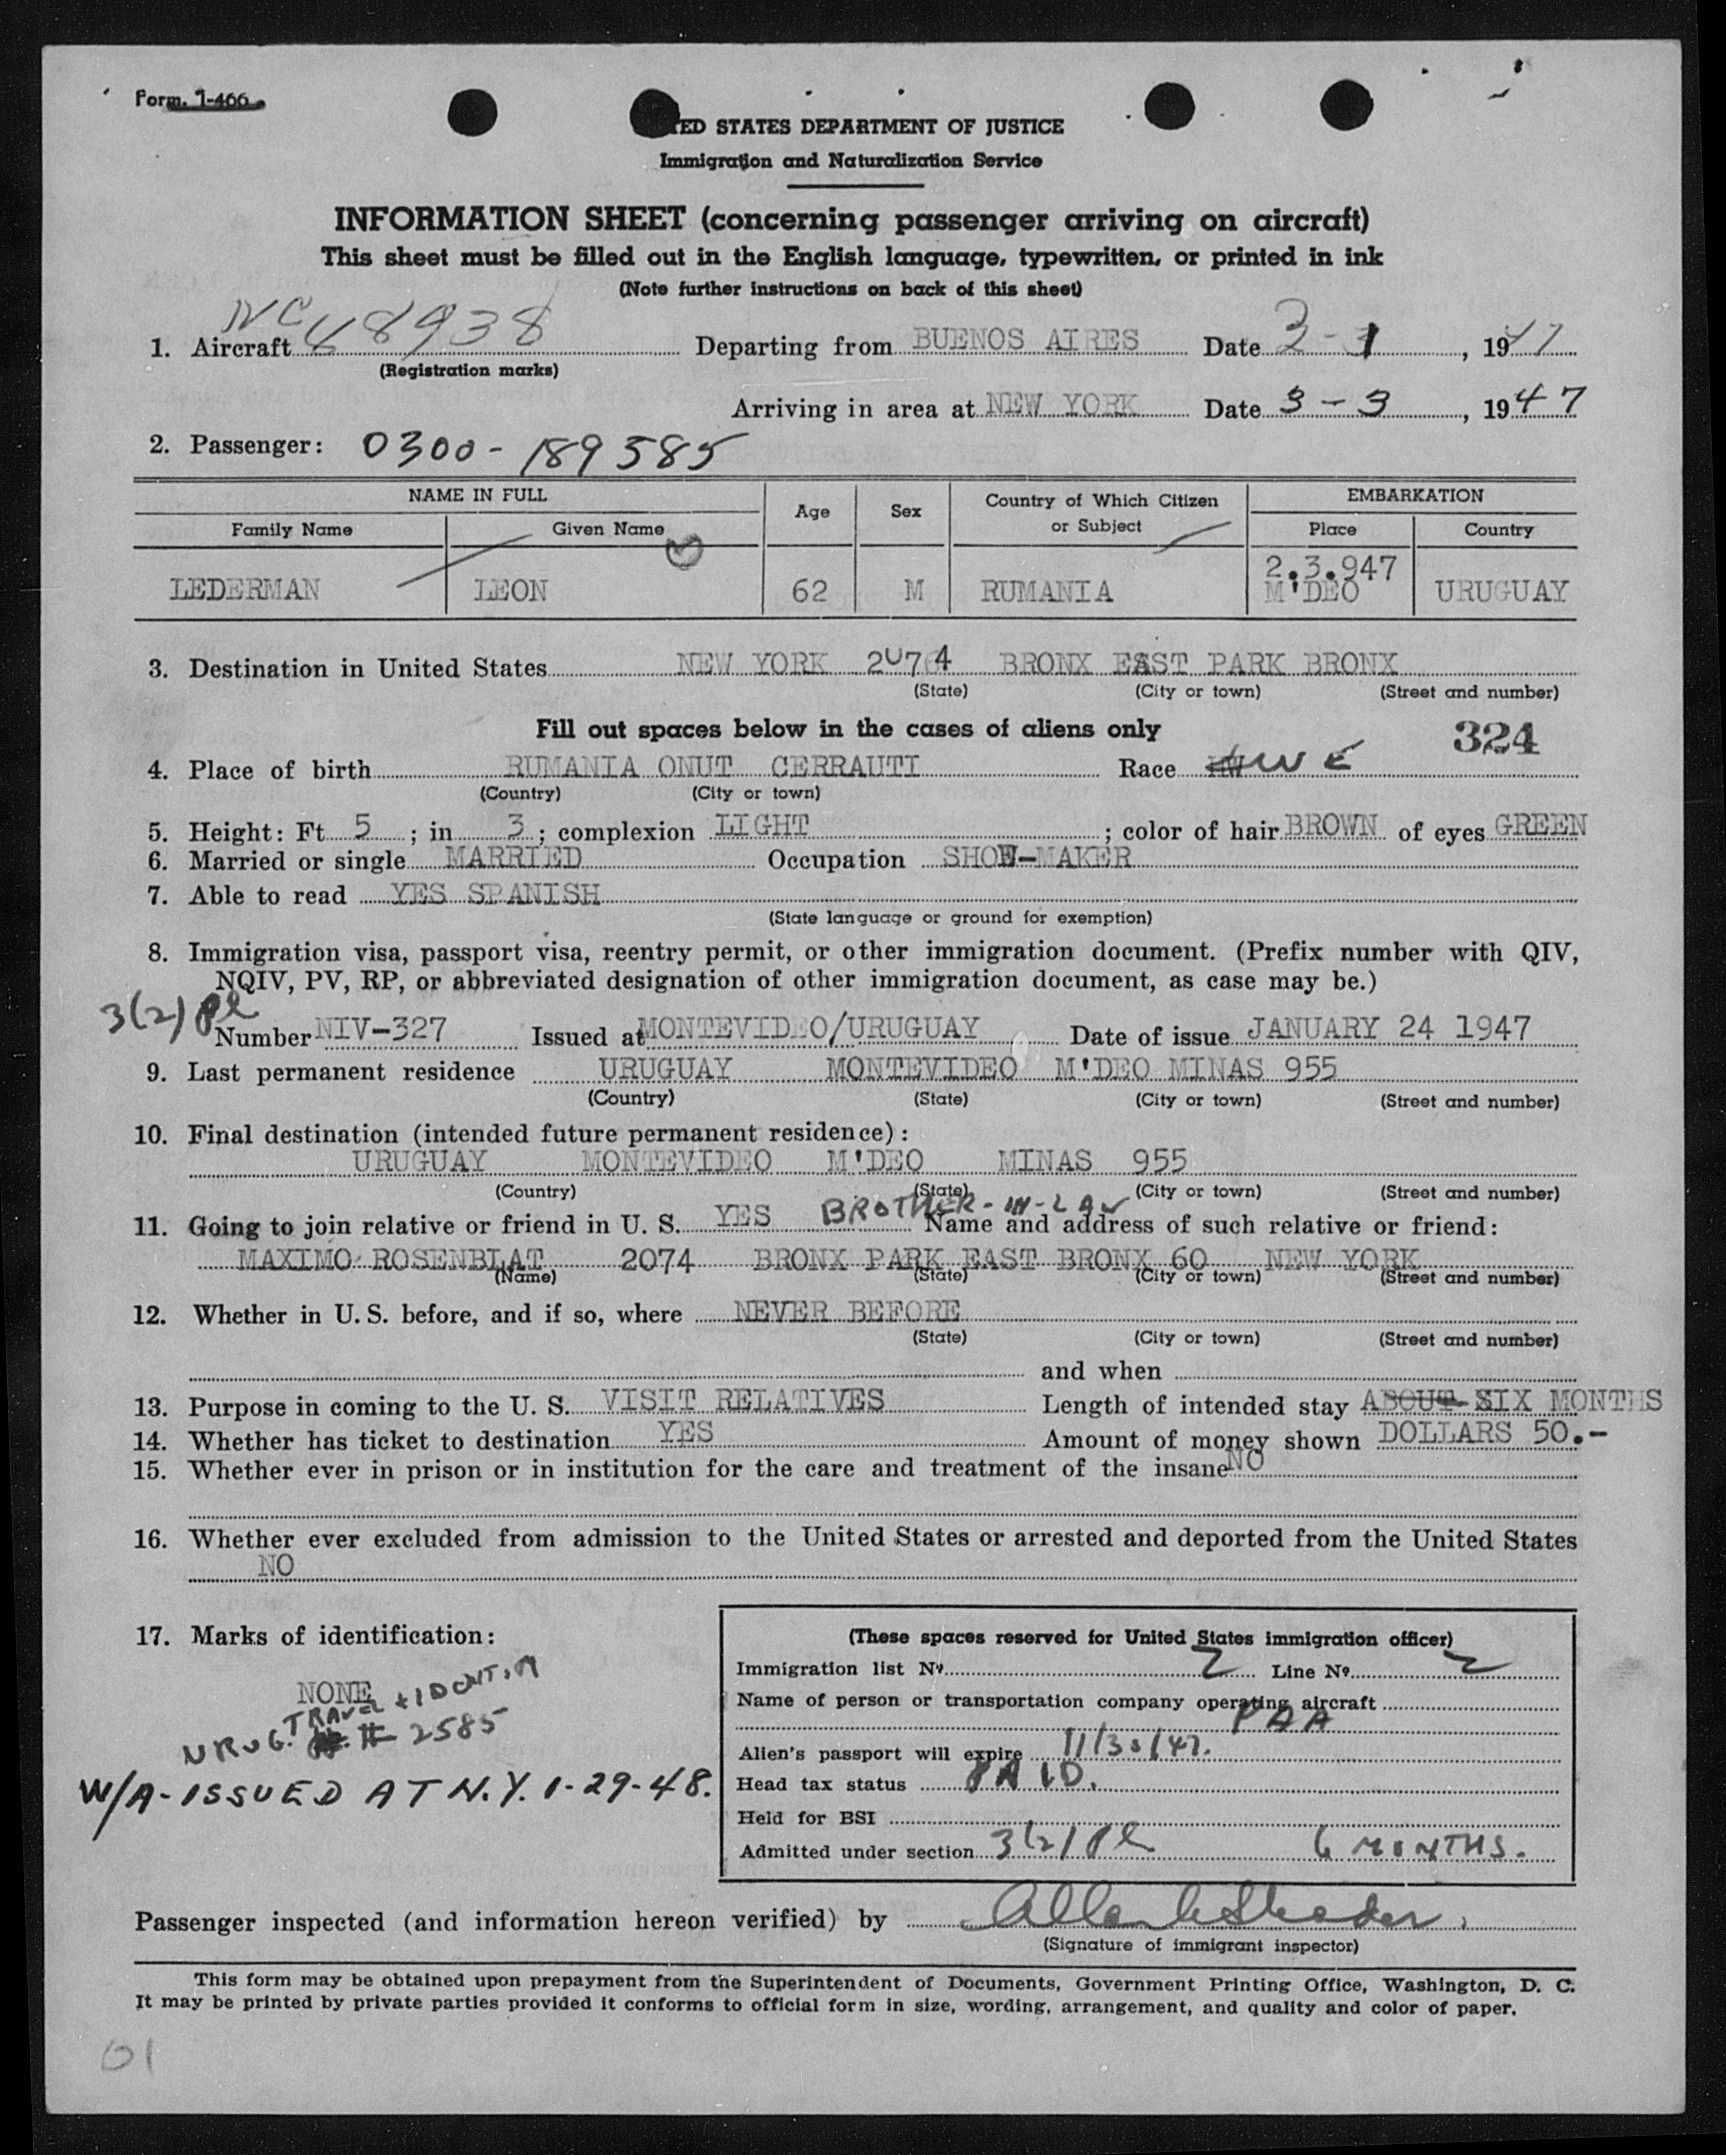 Form. I-466
UNITED STATES DEPARTMENT OF JUSTICE
Immigration and Naturalization Service
INFORMATION SHEET (concerning passenger arriving on aircraft)
This sheet must be filled out in the English language, typewritten, or printed in ink
(Note further instructions on back of this sheet)
1. Aircraft NC 48938 Departing from BUENOS AIRES Date 3-1, 1947
(Registration marks)
Arriving in area at NEW YORK Date 3-3, 1947
2. Passenger: 0300-189585
NAME IN FULL Age Sex Country of Which Citizen or Subject EMBARKATION
Family Name Given Name Place Country
2.3.947
LEDERMAN LEON 62 M RUMANIA M'DEO URUGUAY
3. Destination in United States NEW YORK 2074 BRONX EAST PARK BRONX
(State) (City or town) (Street and number)
Fill out spaces below in the cases of aliens only 324
4. Place of birth RUMANIA ONUT CERRAUTI Race
(Country) (City or town)
5. Height: Ft 5; in 3; complexion LIGHT; color of hair BROWN of eyes GREEN
6. Married or single MARRIED Occupation SHOE-MAKER
7. Able to read YES SPANISH
(State language or ground for exemption)
8. Immigration visa, passport visa, reentry permit, or other immigration document. (Prefix number with QIV,
NQIV, PV, RP, or abbreviated designation of other immigration document, as case may be.)
3(2) Pl
Number NIV-327 Issued at MONTEVIDEO/URUGUAY Date of issue JANUARY 24 1947
9. Last permanent residence URUGUAY MONTEVIDEO M'DEO MINAS 955
(Country) (State) (City or town) (Street and number)
10. Final destination (intended future permanent residence):
URUGUAY MONTEVIDEO M'DEO MINAS 955
(Country) (State) (City or town) (Street and number)
11. Going to join relative or friend in U. S. YES BROTHER-IN-LAW Name and address of such relative or friend:
MAXIMO ROSENBLAT 2074 BRONX PARK EAST BRONX 60 NEW YORK
(Name) (State) (City or town) (Street and number)
12. Whether in U. S. before, and if so, where NEVER BEFORE
(State) (City or town) (Street and number)
and when
13. Purpose in coming to the U. S. VISIT RELATIVES Length of intended stay ABOUT SIX MONTHS
14. Whether has ticket to destination YES Amount of money shown DOLLARS 50.-
15. Whether ever in prison or in institution for the care and treatment of the insane NO
16. Whether ever excluded from admission to the United States or arrested and deported from the United States
NO
17. Marks of identification:
NONE
TRAVEL + IDENTITY
URUG. # 2585
W/A-ISSUED AT N.Y. 1-29-48.
(These spaces reserved for United States immigration officer)
Immigration list No. 2 Line No. 2
Name of person or transportation company operating aircraft
PAA
Alien's passport will expire 11/30/47.
Head tax status PAID.
Held for BSI
Admitted under section 3(2) Pl 6 MONTHS.
Passenger inspected (and information hereon verified) by
(Signature of immigrant inspector)
This form may be obtained upon prepayment from the Superintendent of Documents, Government Printing Office, Washington, D. C.
It may be printed by private parties provided it conforms to official form in size, wording, arrangement, and quality and color of paper.
01